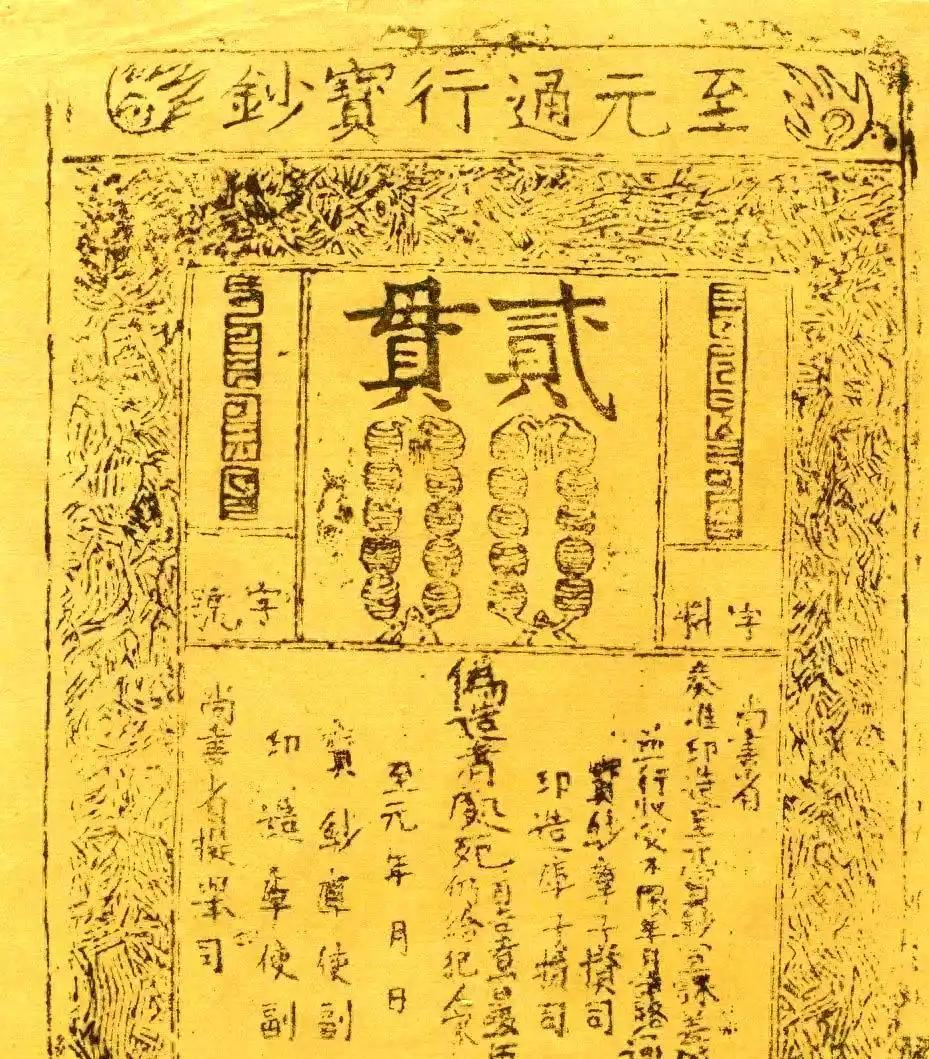 至元通行寶鈔
貳貫
字料
字號
尚書省
奏准印造至元寶鈔宣課差
並行收受不限年月諸路
寶鈔庫子攢司
印造庫子攢司
偽造者處死首告者賞銀五
仍給犯人家
至元 年 月 日
寶鈔庫使副
印造庫使副
尚書省提舉司